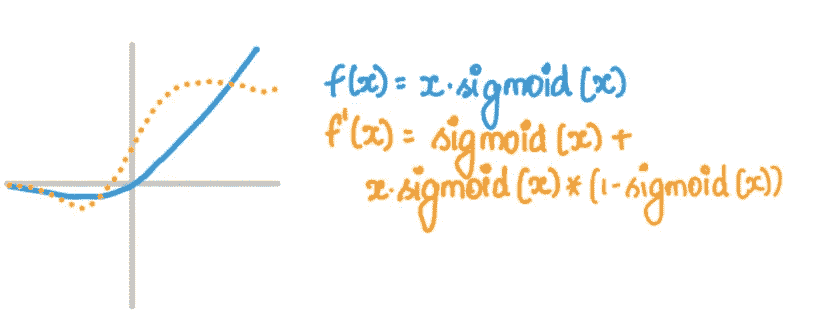 f(x) = x·sigmoid(x)
f'(x) = sigmoid(x) +
x·sigmoid(x)*(1-sigmoid(x))